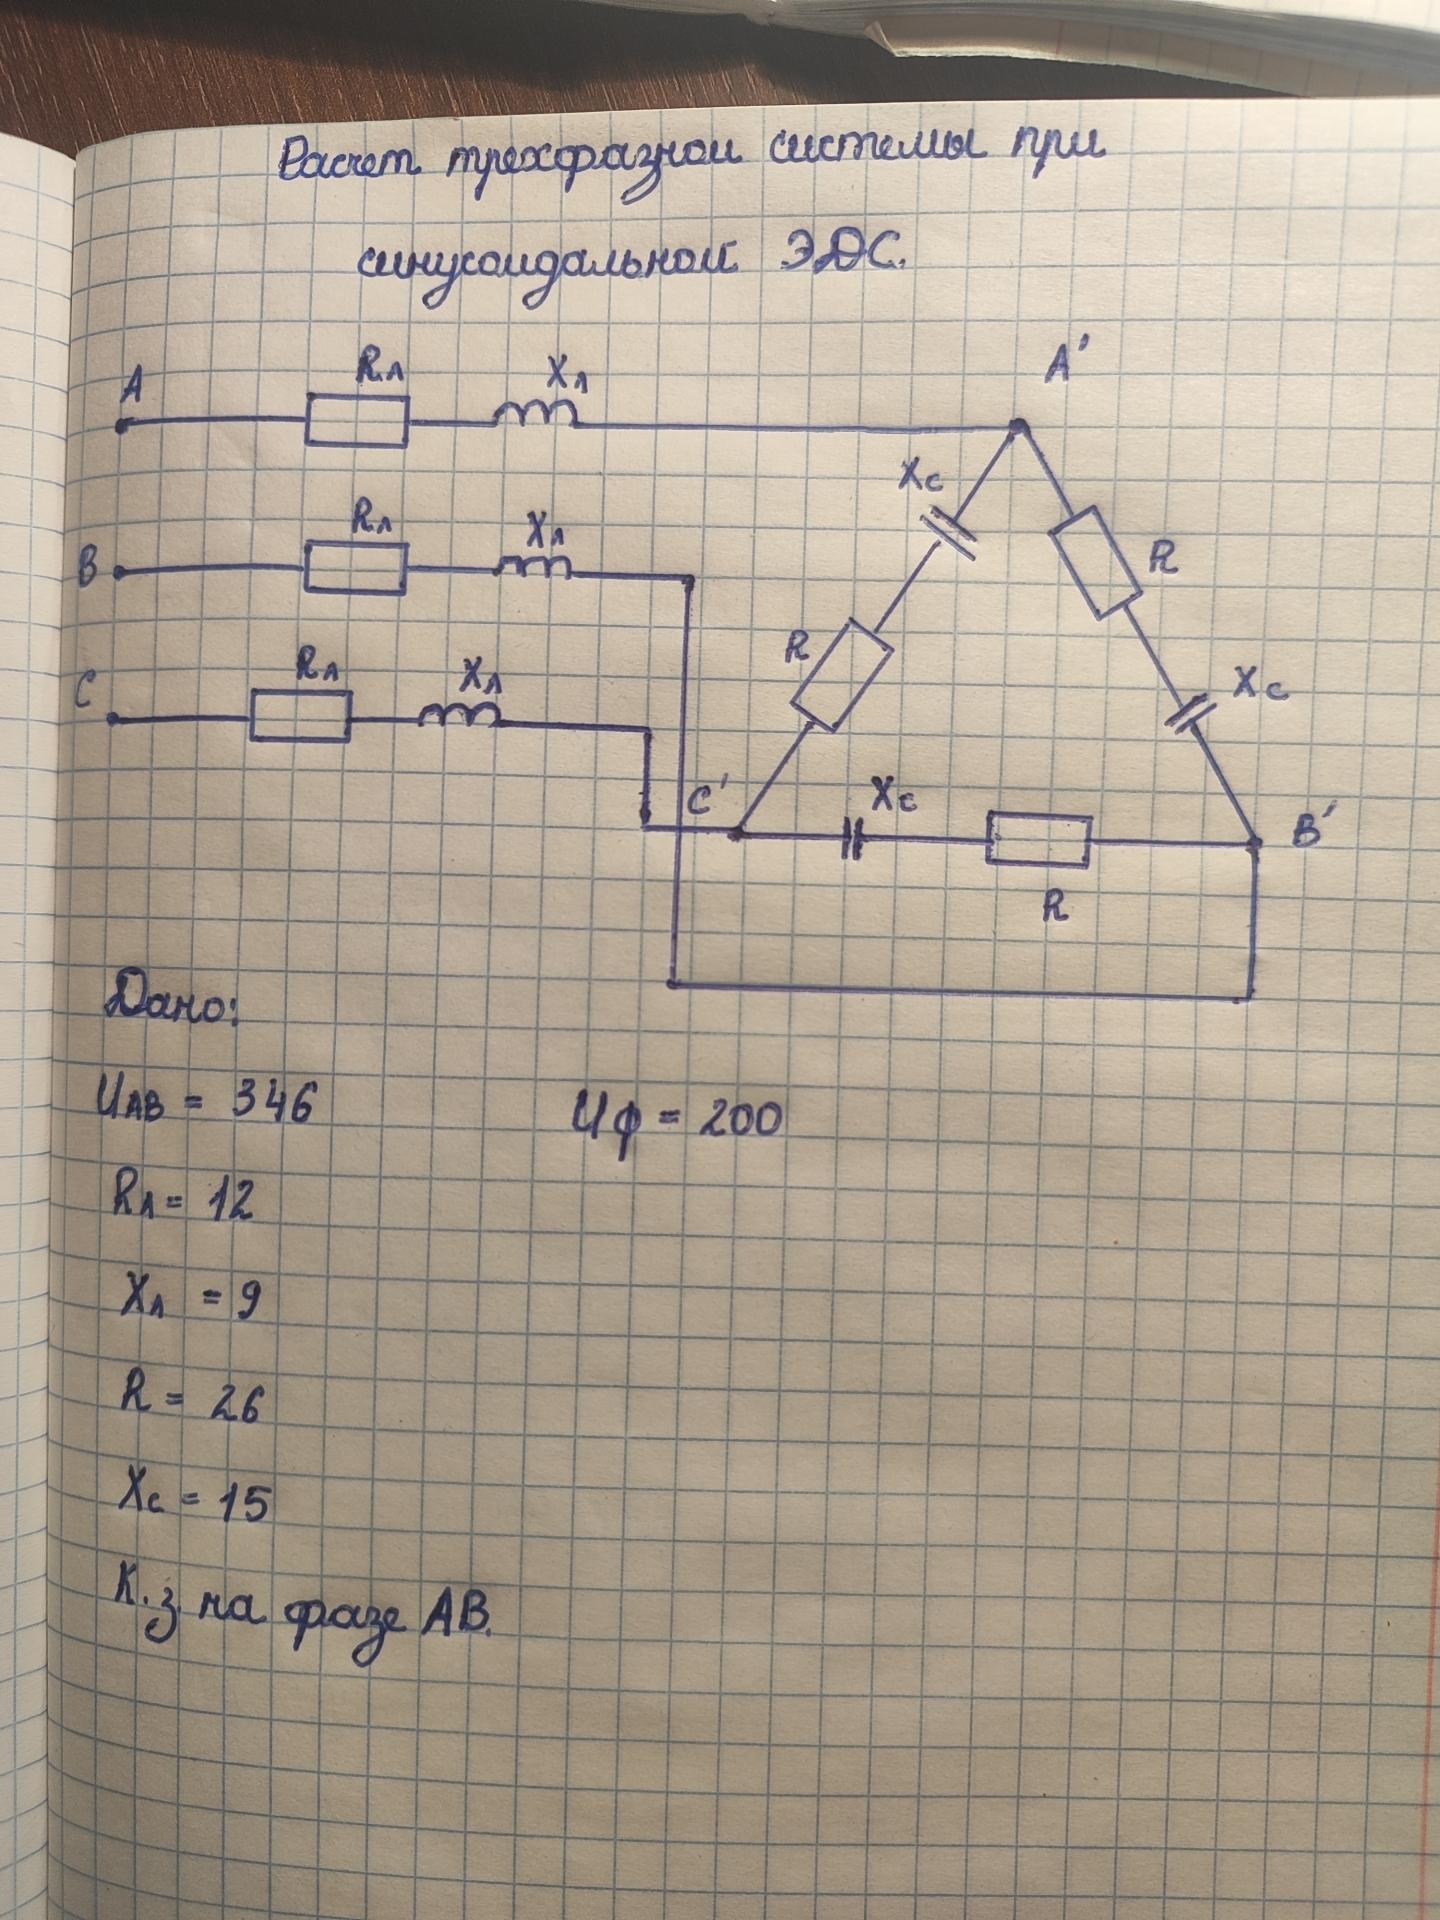 Расчет трехфазной системы при
синусоидальной ЭДС.
A
Rл
Xл
A'
B
Rл
Xл
Xc
R
C
Rл
Xл
R
Xc
C'
Xc
B'
R
Дано:
UAB = 346
Uф = 200
Rл = 12
Xл = 9
R = 26
Xc = 15
К.з на фазе АВ.